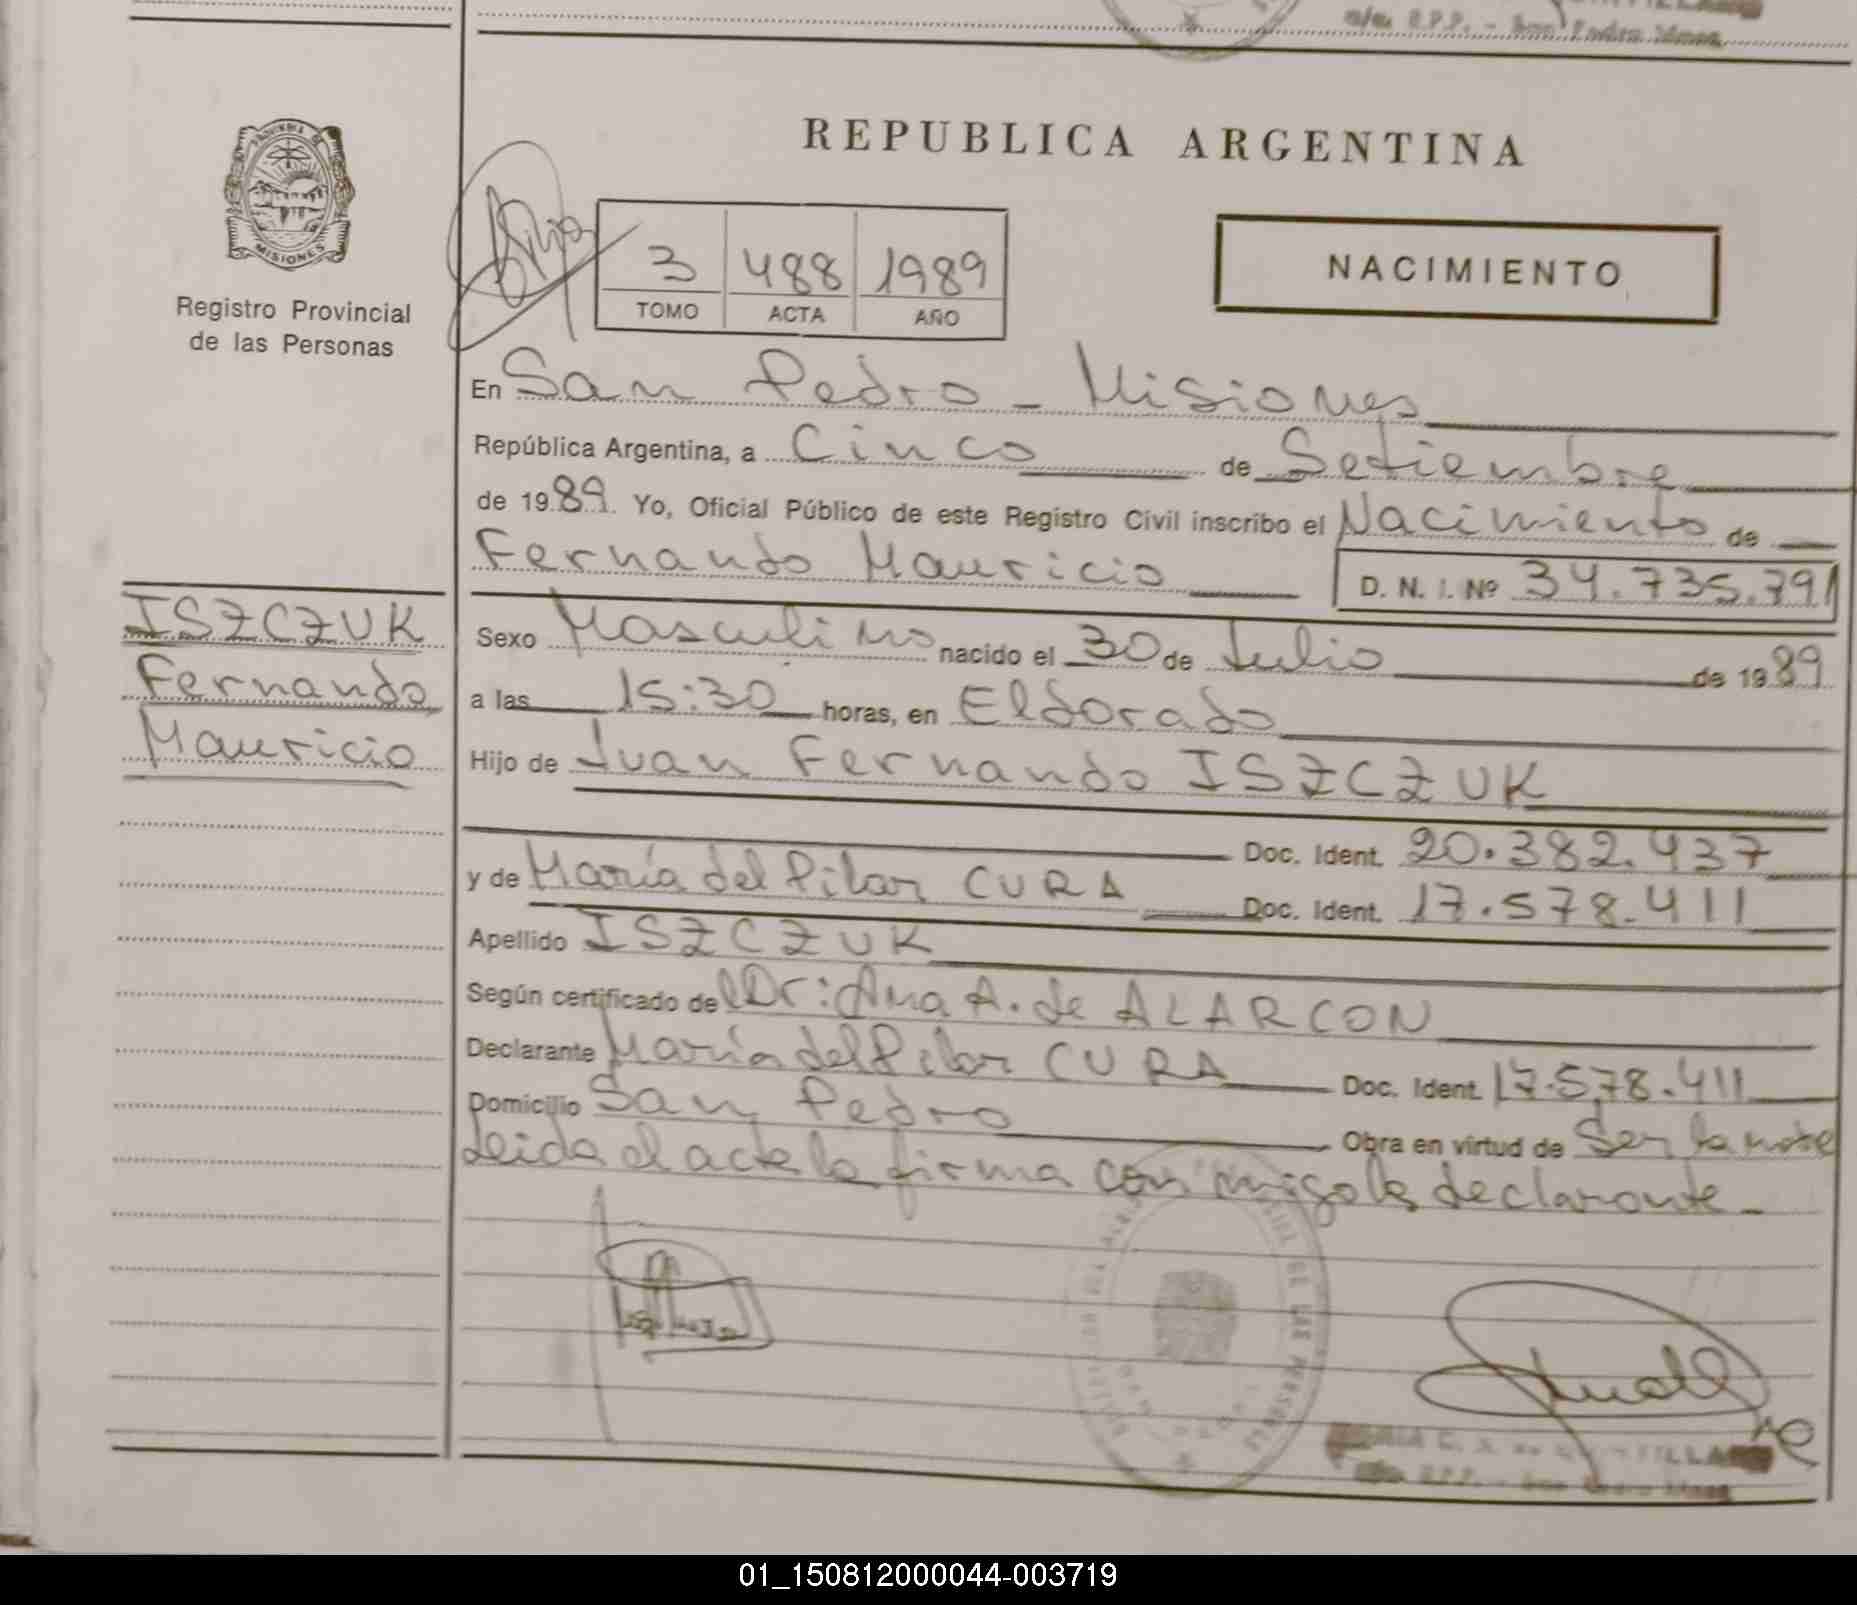 REPUBLICA ARGENTINA
PROVINCIA DE MISIONES
Registro Provincial
de las Personas
3 488 1989
TOMO ACTA AÑO
NACIMIENTO
En San Pedro - Misiones
República Argentina, a Cinco de Setiembre
de 1989. Yo, Oficial Público de este Registro Civil inscribo el Nacimiento de
Fernando Mauricio D. N. I. Nº 34.735.791
ISZCZUK
Fernando
Mauricio
Sexo Masculino nacido el 30 de Julio de 1989
a las 15:30 horas, en Eldorado
Hijo de Juan Fernando ISZCZUK
Doc. Ident. 20.382.437
y de María del Pilar CURA Doc. Ident. 17.578.411
Apellido ISZCZUK
Según certificado del Dr: Ana A. de ALARCON
Declarante María del Pilar CURA Doc. Ident. 17.578.411
Domicilio San Pedro Obra en virtud de Ser la madre
Leida el acta la firma conmigo la declarante -
DE LAS PERSONAS
01_150812000044-003719